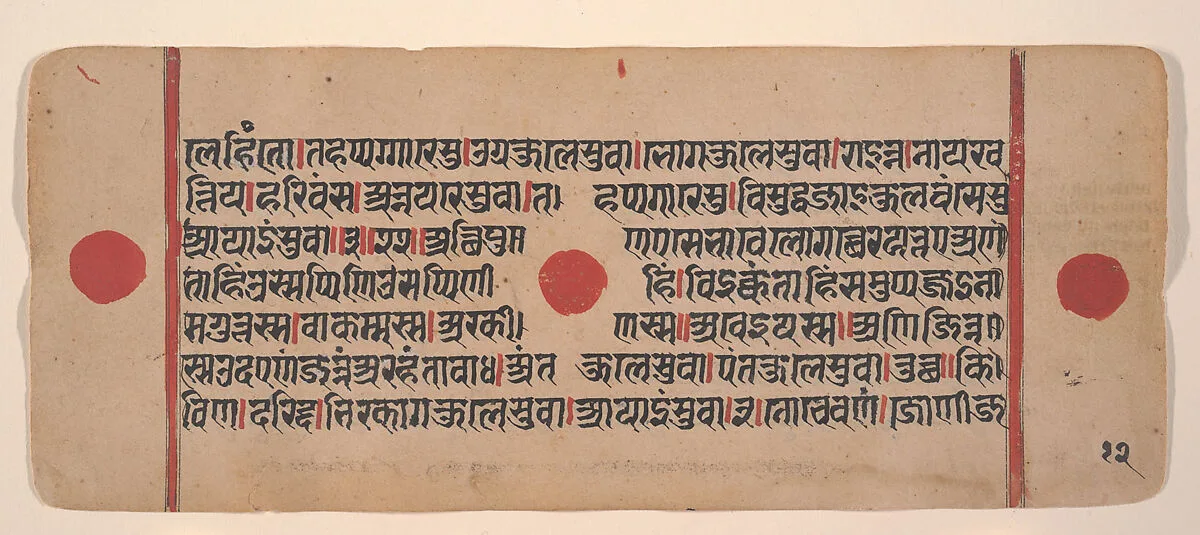 लेहिंतो।तहप्पगारेसु।उग्गकुलेसुवा।भोगकुलेसुवा।राइन्न।नायख
त्तिय।हरिवंस।अन्नयरेसुवा।त। हप्पगारेसु।विसुद्धजाइकुलवंसेसु
आयाइंसुवा॥३॥२१॥अत्थिपुण एसेभावेलोगच्छेरयभूएअणं
ताहिंउस्सप्पिणिउसप्पिणी हिं।विइक्कंताहिंसमुप्पज्जइना
मगुत्तस्स।वाकम्मस्स।अक्खी। णस्स॥अवेइयस्स॥अणिज्जिन्न॥
स्सउदएणंजन्नंअरहंतावा४।अंत कुलेसुवा।पंतकुलेसुवा।तुच्छ॥कि।
विण।दरिद्द।भिक्खागकुलेसुवा।आयाइंसुवा।३।नोचेवणं।जोणीज
१२